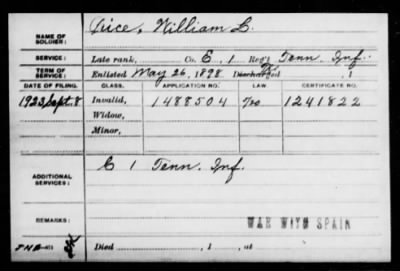 NAME OF SOLDIER: Price, William L.
SERVICE: Late rank, Co. E, 1 Reg't Tenn. Inf.
TERM OF SERVICE: Enlisted May 26, 1898 Discharged , 1
DATE OF FILING. CLASS. APPLICATION NO. LAW. CERTIFICATE NO.
1923 Sept. 8 Invalid, 1488504 1241822
Widow,
Minor,
ADDITIONAL SERVICES: 1 Tenn. Inf.
REMARKS: WAR WITH SPAIN
Died , 1 , at